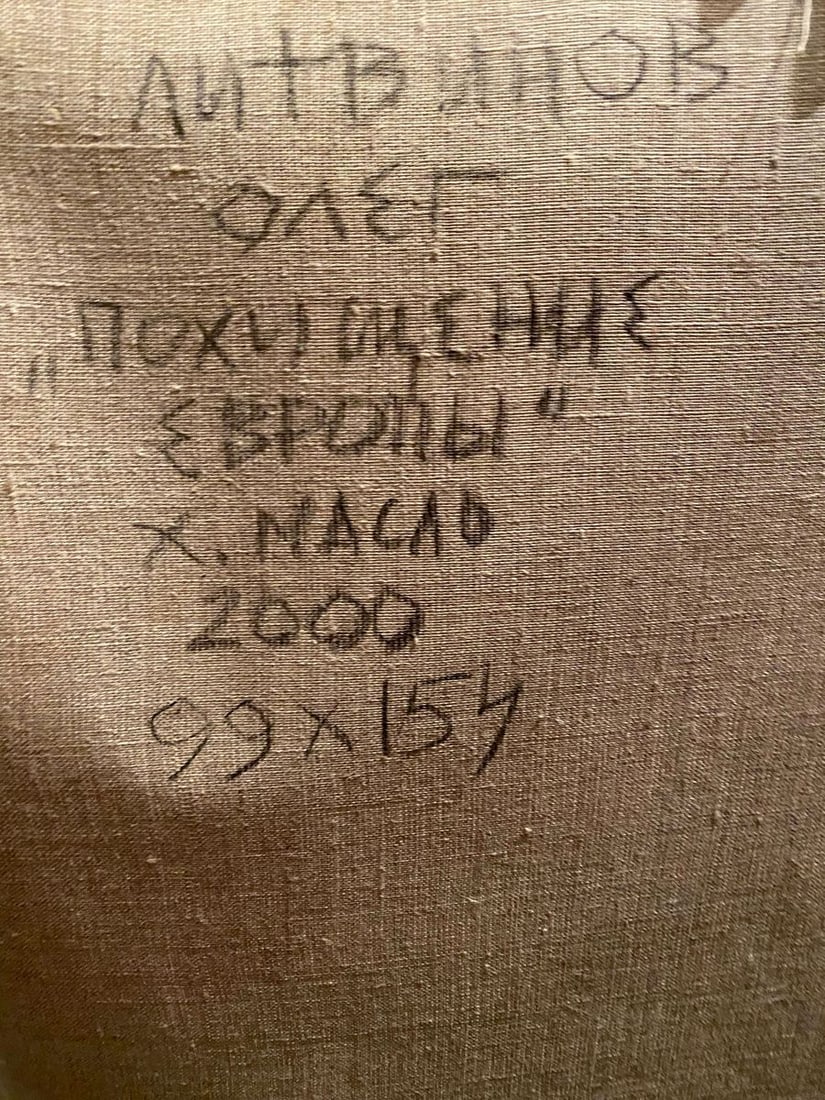 ЛИТВИНОВ
ОЛЕГ
„ПОХИЩЕНИЕ
ЕВРОПЫ“
Х. МАСЛО
2000
99х154